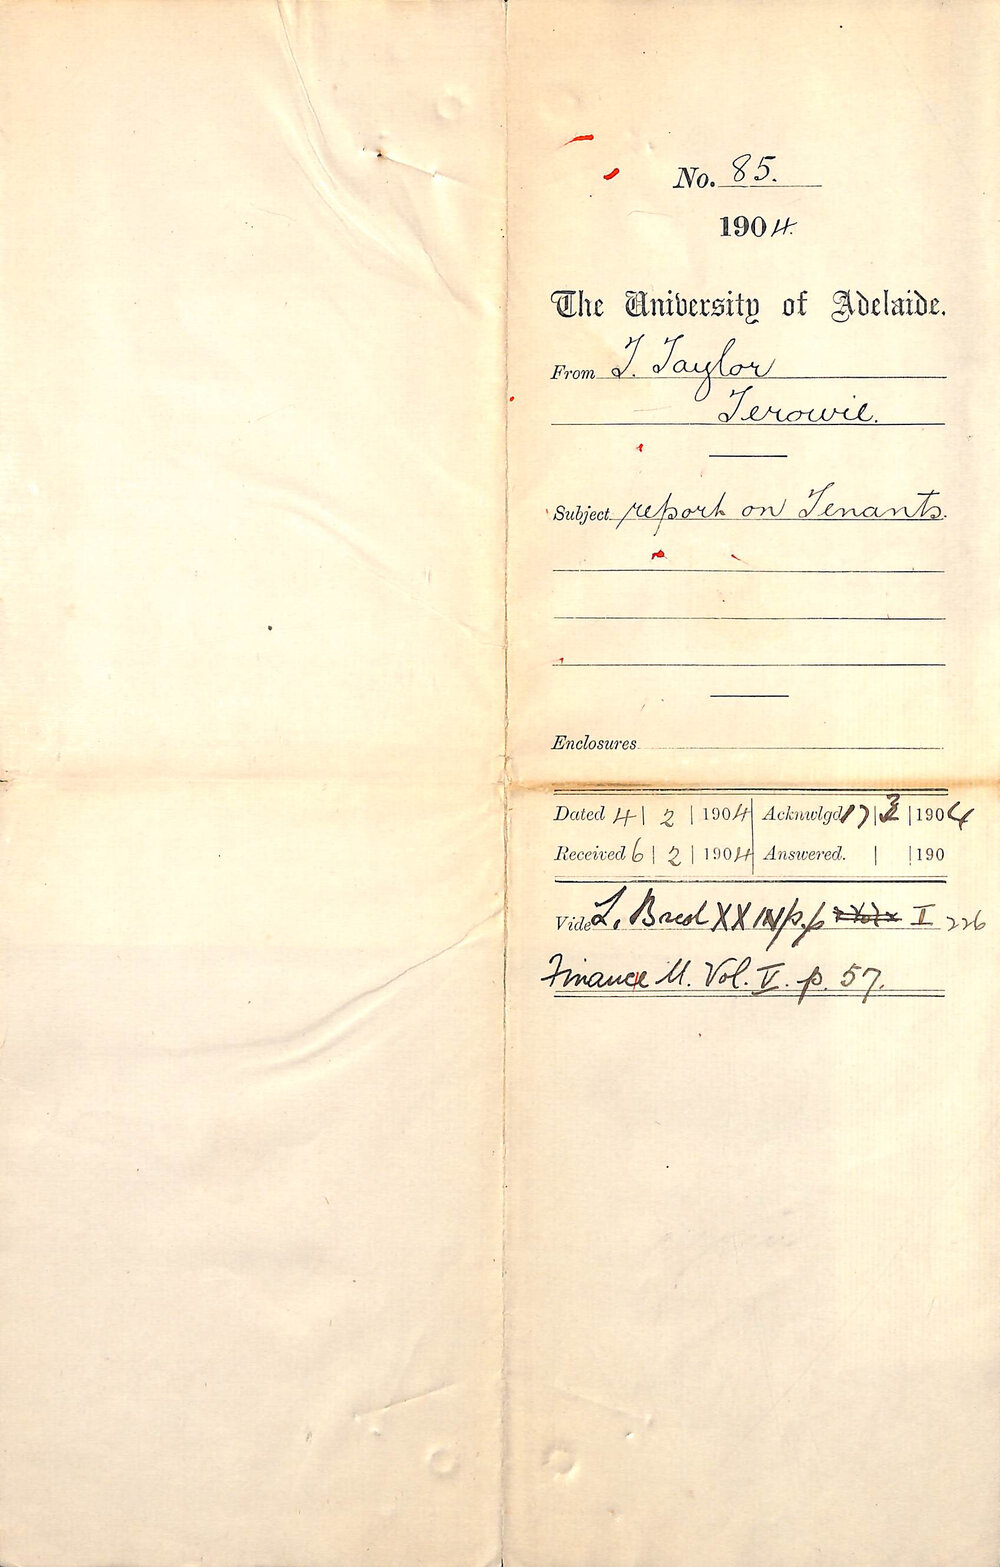 No. 85.
1904.
The University of Adelaide.
From T. Taylor
Terowie.
Subject report on Tenants.
Enclosures
Dated 4 | 2 | 1904 Acknwlgd 17 | | 1904
Received 6 | 2 | 1904 Answered. | | 190
Vide L. XX p.p II 226
Finance M. Vol. V. p. 57.